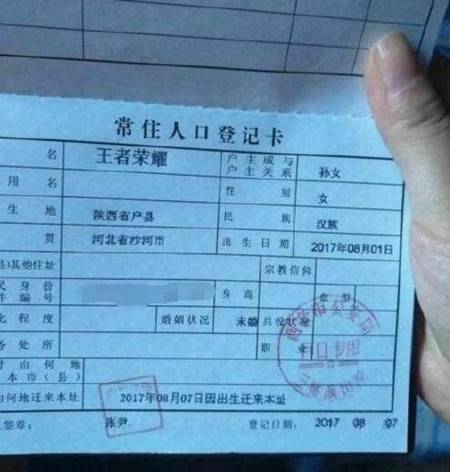 常住人口登记卡
名 王者荣耀 户主或与户主关系 孙女
用名 性别 女
生地 陕西省户县 民族 汉族
贯 河北省沙河市 出生日期 2017年08月01日
县)其他住址 宗教信仰
民身份件编号 身高 血型
化程度 婚姻状况 未婚 兵役状况
务处所 职业
时由何地本市(县)
何地迁来本址 2017年08月07日因出生迁来本址
人签章: 登记日期: 2017 08 07